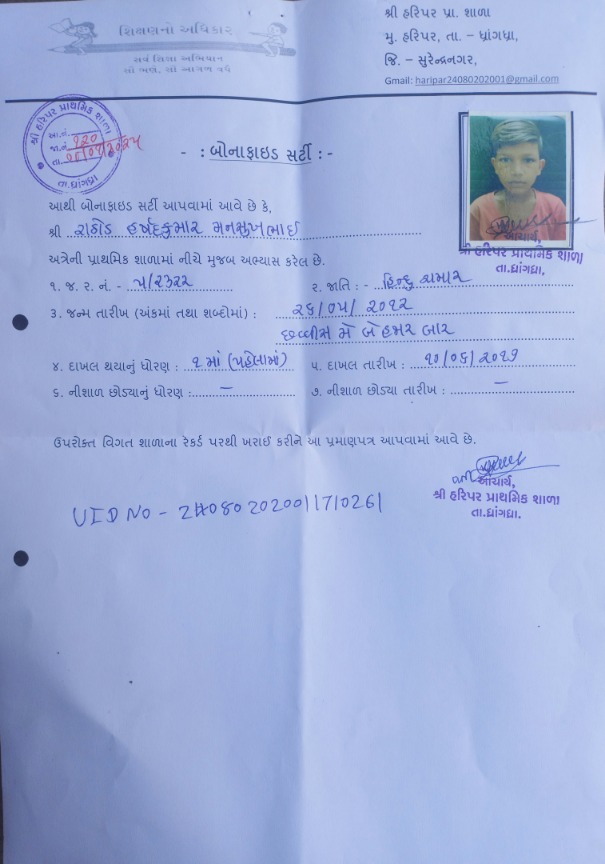 શિક્ષણનો અધિકાર
સર્વ શિક્ષા અભિયાન
સૌ ભણે, સૌ આગળ વધે
શ્રી હરિપર પ્રા. શાળા
મુ. હરિપર, તા. – ધ્રાંગધ્રા,
જિ. – સુરેન્દ્રનગર,
Gmail: haripar24080202001@gmail.com
શ્રી હરિપર પ્રાથમિક શાળા
આ.નં.
જા.નં. ૧૨૦
તા.
તા.ધ્રાંગધ્રા
- : બોનાફાઇડ સર્ટી : -
આથી બોનાફાઇડ સર્ટી આપવામાં આવે છે કે,
શ્રી રાઠોડ હર્ષદકુમાર મનસુખભાઈ
આચાર્ય,
શ્રી હરિપર પ્રાથમિક શાળા
તા.ધ્રાંગધ્રા.
અત્રેની પ્રાથમિક શાળામાં નીચે મુજબ અભ્યાસ કરેલ છે.
૧. જ. ર. નં. - ૫/૨૩૨૨ ૨. જાતિ : - હિન્દુ ચમાર
૩. જન્મ તારીખ (અંકમાં તથા શબ્દોમાં) : ૨૬/૦૫/૨૦૧૨
છવ્વીસ મે બે હજાર બાર
૪. દાખલ થયાનું ધોરણ : ૧ માં (પહેલામાં) ૫. દાખલ તારીખ : ૧૦/૦૬/૨૦૧૭
૬. નીશાળ છોડ્યાનું ધોરણ : – ૭. નીશાળ છોડ્યા તારીખ : –
ઉપરોક્ત વિગત શાળાના રેકર્ડ પરથી ખરાઈ કરીને આ પ્રમાણપત્ર આપવામાં આવે છે.
આચાર્ય,
શ્રી હરિપર પ્રાથમિક શાળા
તા.ધ્રાંગધ્રા.
UID NO - 240802020011710261